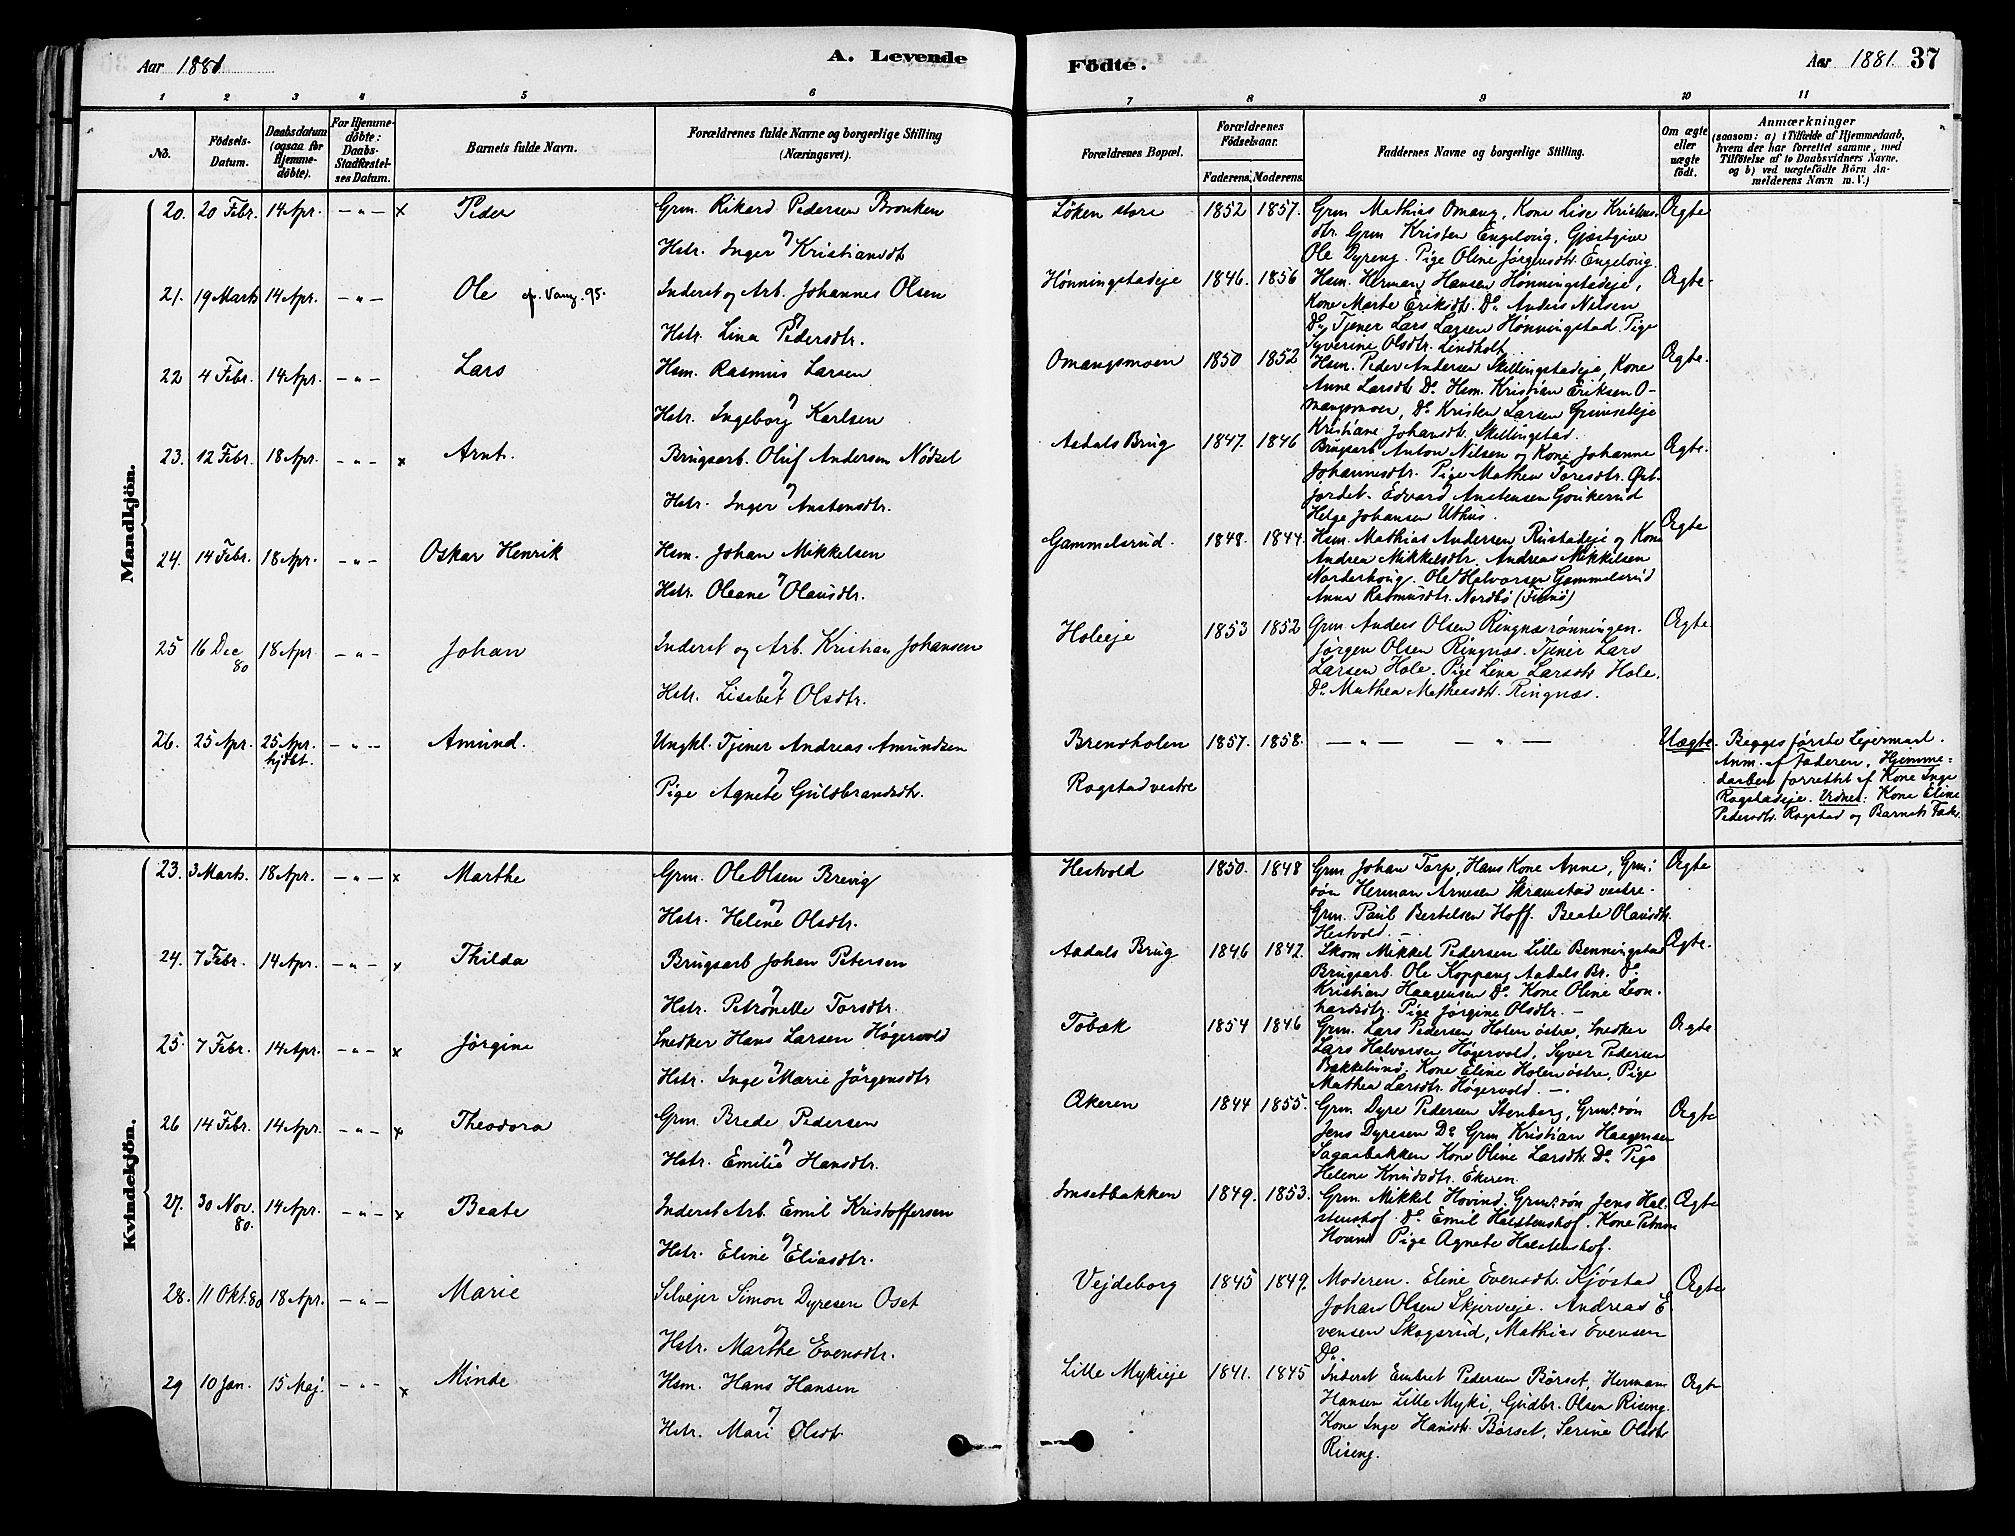 Aar 1881.
A. Levende
1 2 3 4 5 6
No.
Födsels-
Datum.
Daabsdatum
(ogsaa for
Hjemme-
döbte).
For Hjemme-
döbte:
Daabs-
Stadfæstel-
ses Datum.
Barnets fulde Navn.
Forældrenes fulde Navne og borgerlige Stilling
(Næringsvei).
Mandkjön.
20. 20 Febr. 14 Apr. — „ — x Peder Grm. Rikard Pedersen Bronken
Hstr. Inger Kristiansdtr
21. 19 Marts 14 Apr. — „ — Ole Vang. 95. Inderst og Arb. Johannes Olsen
Hstr. Lina Pedersdtr.
22 4 Febr. 14 Apr. — „ — Lars Hsm. Rasmus Larsen
Hstr. Ingeborg Karlsen
23. 12 Febr. 18 Apr. — „ — x Arnt. Brugsarb. Oluf Andersen Nödset
Hstr. Inger Anstensdtr.
24. 14 Febr. 18 Apr. — „ — Oskar Henrik Hsm. Johan Mikkelsen
Hstr. Oleane Olausdtr.
25 16 Dec 80 18 Apr. — „ — Johan Inderst og Arb. Kristian Johansen
Hstr. Lisebet Olsdtr.
26. 25 Apr. 25 Apr. hjdbt. — „ — Amund. Ungkl. Tjener Andreas Amundsen
Pige Agnete Guldbrandsdtr.
Kvindekjön.
23. 3 Marts. 18 Apr. — „ — x Marthe Grm. Ole Olsen Brevig
Hstr. Helene Olsdtr.
24. 7 Febr. 14 Apr. — „ — x Thilda Brugsarb Johan Petersen
Hstr. Petronelle Torsdtr.
25. 7 Febr. 14 Apr. — „ — x Jörgine Snedker Hans Larsen Högervold
Hstr. Inge Marie Jörgensdtr
26 14 Febr. 14 Apr. — „ — x Theodora Grm. Brede Pedersen
Hstr. Emilie Hansdtr.
27. 30 Nov. 80. 14 Apr. — „ — x Beate Inderst Arb. Emil Kristoffersen
Hstr. Eline Eliasdtr.
28. 11 Okt. 80 18 Apr. — „ — Marie Selvejer Simon Dyresen Oset
Hstr. Marthe Evensdtr.
29 10 Jan. 15 Maj. — „ — x Minde Hsm. Hans Hansen
Hstr. Mari Olsdtr
Födte.
Aar 1881. 37
7 8 9 10 11
Forældrenes Bopæl.
Forældrenes
Födselsaar.
Faderens. Moderens.
Faddernes Navne og borgerlige Stilling.
Om ægte
eller
uægte
födt.
Anmærkninger
(saasom: a) i Tilfælde af Hjemmedaab,
hvem der har forrettet samme, med
Tilföielse af to Daabsvidners Navne.
og b) ved uægtefödte Börn An-
melderens Navn m. V.)
Löken store 1852 1857. Grm Mathias Omang, Kone Lise Kristens- Ægte
dtr. Grm Kristen Engeloug, Gjæstgive
Ole Dyreng. Pige Oline Jörgensdtr. Engeloug.
Hönningstadeje 1846. 1856 Hsm. Herman Hansen Hönningstadeje, Ægte.
Kone Marte Eriksdtr. Do. Anders Nilsen
Do, Tjener Lars Larsen Hönningstad. Pige
Syverine Olsdtr. Lindholt.
Omangsmoen 1850 1852 Hsm. Peder Andersen Skillingstadeje, Kone Ægte.
Anne Larsdtr Do. Hsm. Kristian Eriksen O-
mangsmoen, Do Kristen Larsen Grimseteje
Kristiane Johansdtr. Skillingstad.
Aadals Brug 1847. 1846 Brugsarb Anton Nilsen og Kone Johanne Ægte.
Johannesdtr. Pige Mathea Toresdtr. Öst-
jordet. Edvard Anstensen Goukerud
Helge Johansen Uthus.
Gammelsrud. 1848. 1844. Hsm. Mathias Andersen Rustadeje og Kone Ægte
Andrea Mikkelsdtr. Andreas Mikkelsen
Norderhoug. Ole Halvorsen Gammelsrud
Anna Rasmusdtr. Nordbö
Holeeje 1853 1852 Grm. Anders Olsen Ringnæsrønningen. Ægte
Jörgen Olsen Ringnæs. Tjener Lars
Larsen Hole. Pige Lina Larsdtr Hole.
Do. Mathea Matheasdtr. Ringnæs.
Brendholen 1857. 1858. — „ — — „ — Uægte. Begges förste Lejermaal.
Rogstad vestre
Anm. af Faderen. Hjemme-
daaben forrettet af Kone Inge
Rogstadeje. Vidner: Kone Eline
Pedersdtr. Rogstad og Barnets Fader.
Hestvold 1850. 1848 Grm Johan Torp, Hans Kone Anne, Grm: Ægte
sön Herman Arnesen Skramstad vestre.
Grm. Paul Bertelsen Hoff. Beate Olausdtr
Hestvold. —
Aadals Brug 1846 1842. Skom Mikkel Pedersen Lille Benningstad Ægte.
Brugsarb. Ole Koppang Aadals Br. Do.
Kristian Haagensen Do. Kone Oline Leon-
hardsdtr. Pige Jörgine Olsdtr. —
Tobæk 1854 1846 Grm. Lars Pedersen Holen östre, Snedker Ægte
Lars Halvorsen Högervold, Syver Pedersen
Bakkelund. Kone Eline Holen östre, Pige
Mathea Larsdtr. Högervold. —
Økeren 1844 1855. Grm. Dyre Pedersen Stenberg, Grm:sön Ægte
Jens Dyresen Do Grm Kristian Haagensen
Sagaabakken Kone Oline Larsdtr Do. Pige
Helene Knudsdtr. Ekeren.
Imsetbakken 1849. 1853. Grm. Mikkel Hovind, Grm:sön Jens Hal- Ægte
stenshof. Do. Emil Halstenshof. Kone Petrine
Hovind Pige Agnete Halstenshof.
Vejdeborg 1845 1849. Moderen. Eline Evensdtr. Kjöstad Ægte
Johan Olsen Skjerveje. Andreas E-
vensen Skogsrud, Mathias Evensen
Do.
Lille Mykieje 1841. 1845 Inderst Embret Pedersen Börset, Herman Ægte
Hansen Lille Myki, Gudbr. Olsen Riseng.
Kone Inge Hansdtr. Börset, Serine Olsdtr
Riseng.